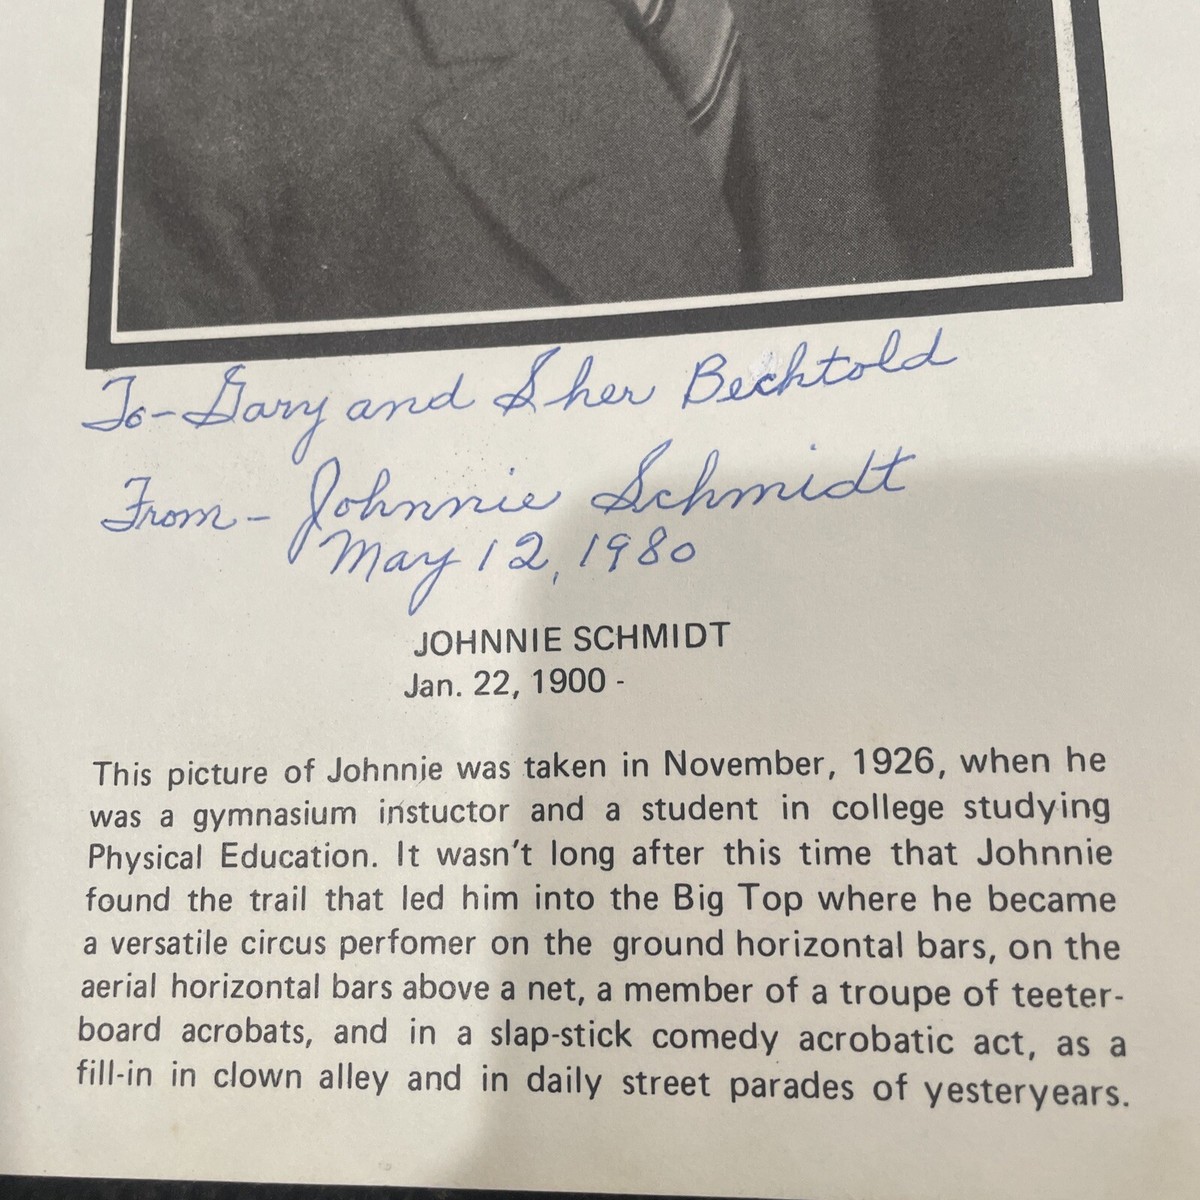 To-Gary and Sher Bechtold
From- Johnnie Schmidt
May 12, 1980
JOHNNIE SCHMIDT
Jan. 22, 1900 -
This picture of Johnnie was taken in November, 1926, when he
was a gymnasium instuctor and a student in college studying
Physical Education. It wasn't long after this time that Johnnie
found the trail that led him into the Big Top where he became
a versatile circus perfomer on the ground horizontal bars, on the
aerial horizontal bars above a net, a member of a troupe of teeter-
board acrobats, and in a slap-stick comedy acrobatic act, as a
fill-in in clown alley and in daily street parades of yesteryears.